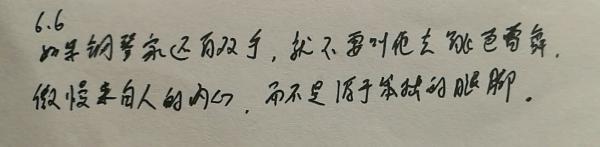 6.6
如果钢琴家还有双手，就不要叫他去跳芭蕾舞，
傲慢来自人的内心，而不是源于笨拙的腿脚。